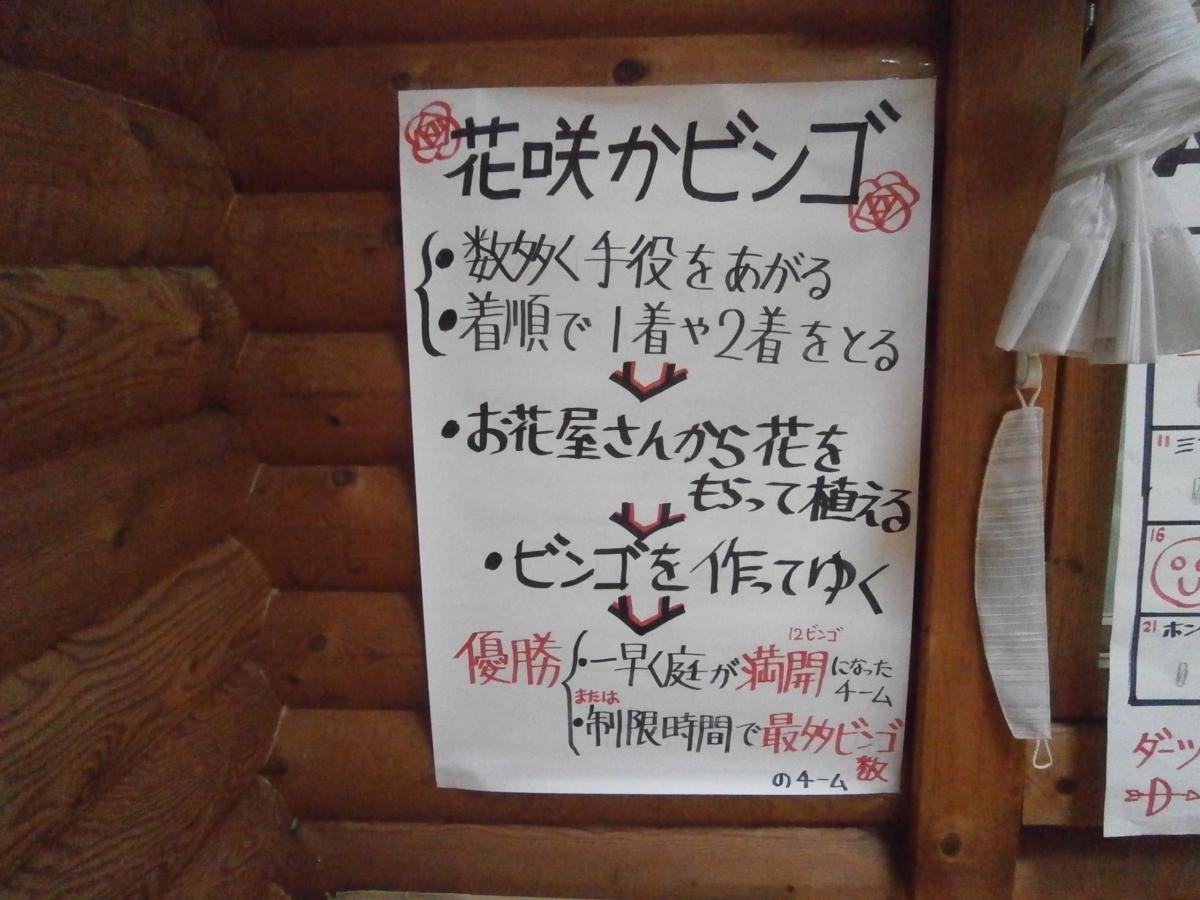 花咲かビンゴ
・数多く手役をあがる
・着順で1着や2着をとる
・お花屋さんから花を
もらって植える
・ビンゴを作ってゆく
12ビンゴ
優勝
・一早く庭が満開になった
チーム
または
・制限時間で最多ビンゴ
数
のチーム
11
ミ
16
21 ホン
ダーツ